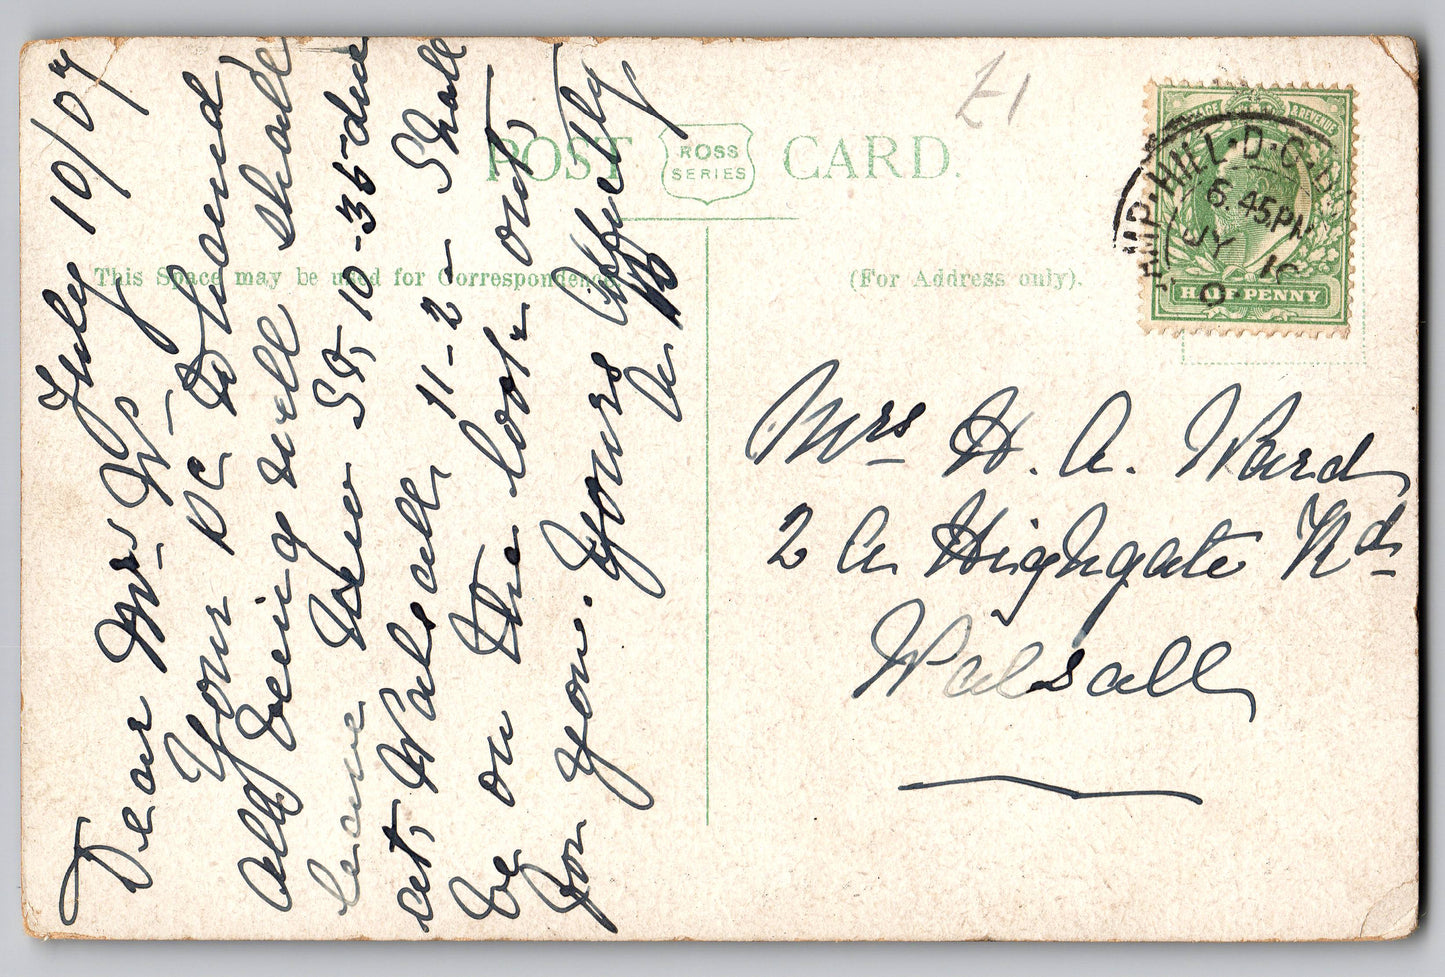 POST CARD.
ROSS
SERIES
£1
This Space may be used for Correspondence
(For Address only).
POSTAGE & REVENUE
HALF PENNY
HILL · D · O
6.45PM
JY 10
0
July 10/07
Dear Mrs W-
Your PC to hand,
all being well shall
leave New St, 10-35 due
at, Walsall 11-2- Shall
be on the look-out,
for you. Yours Affectly
A.
Mrs H. A. Ward
2 A Highgate Rd
Walsall